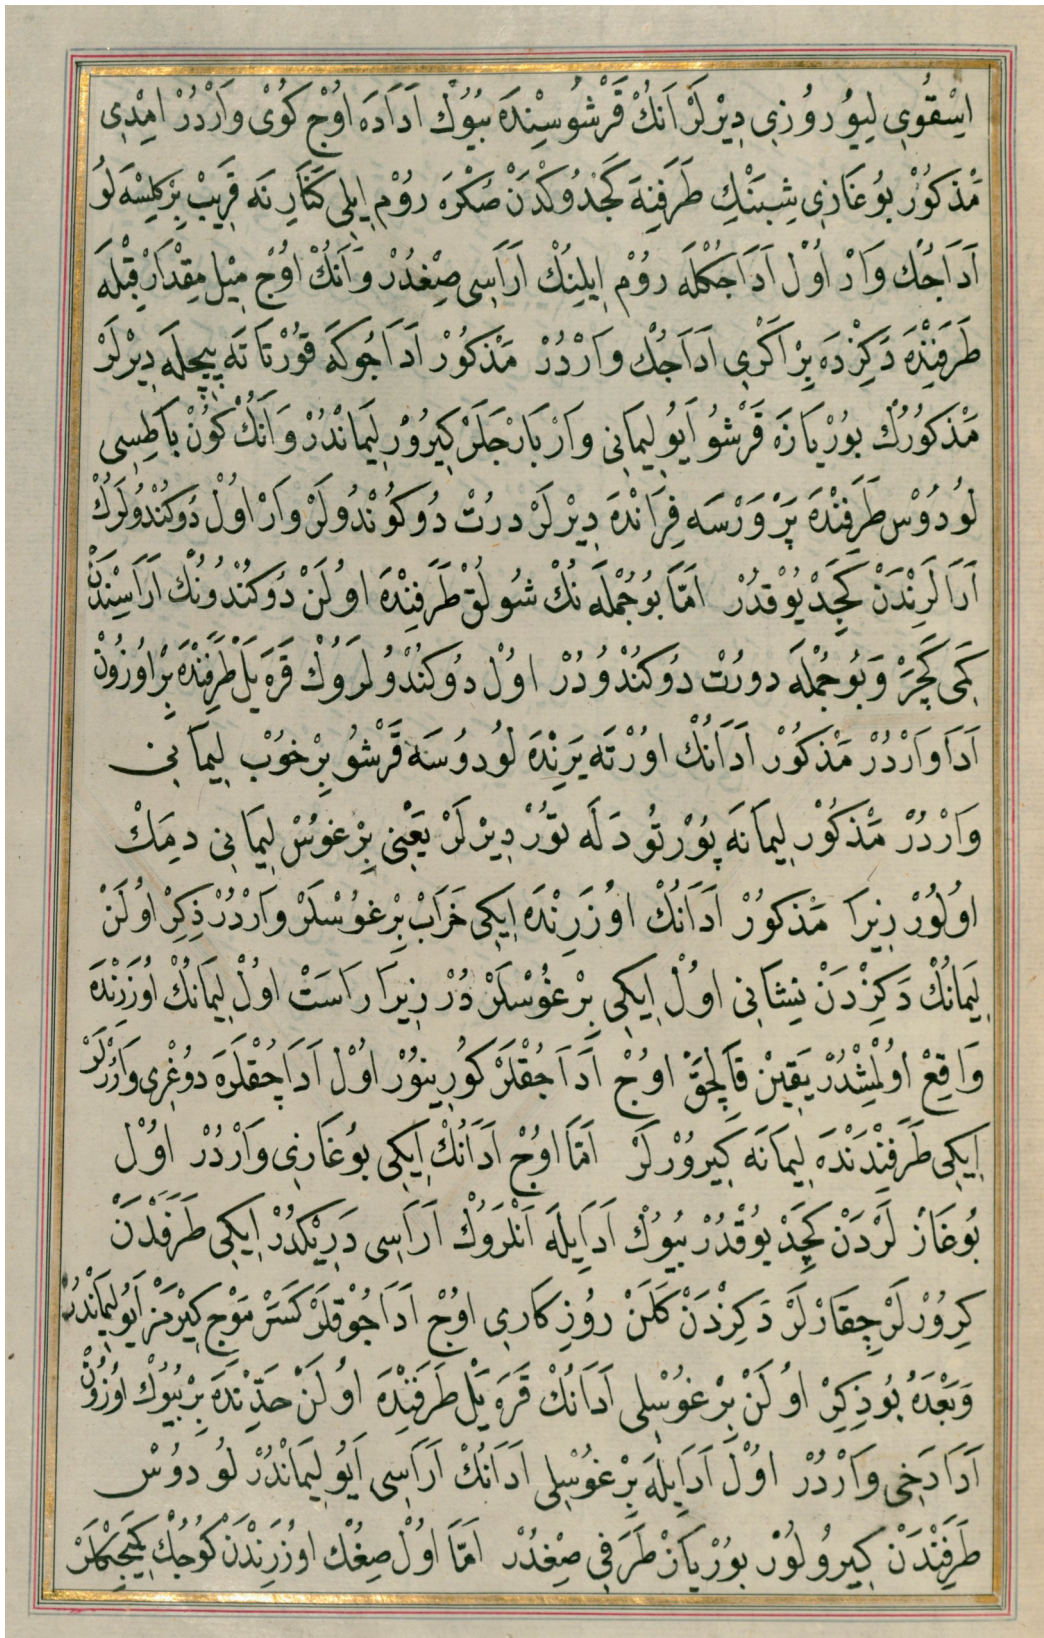 اِسْقُوىِ لِيُو رُوزِى دِيْرلَرْ اَنُكْ قَرْشُوسِنْدَه بُيُوكْ اَدَادَه اُوْج كُوىْ وَارْدُرْ اِمْدِى
مَذْكُورْ بُوغَازِى شِبَنِكِ طَرَفِنَه كَجْدُوكْدَنْ صُكْرَه رُومْ اِيلِى كَنَارِ نَه قَرِيبْ بِرْ كِلِيسَه لُو
اَدَاجُكْ وَارْ اُولْ اَدَاجِكْلَه رُومْ اِيلِنُكْ اَرَاسِى صِغْدُرْ وَاَنُكْ اُوْج مِيْل مِقْدَارْ قِبْلَه
طَرَفِنْدَه دَكِزْدَه بِرْ اَكْرِى اَدَاجُكْ وَارْدُرْ مَذْكُورْ اَدَاجُوكَه قُورْتَاتَه پِيچِلَه دِيْرلَرْ
مَذْكُورُكْ بُورْيَازَه قَرْشُو اَيُو لِيمَانِى وَارْ بَارْجَلَرْ كِيرُورْ لِيمَانْدُرْ وَاَنُكْ كُونْ بَاطِسِى
لُودُوسْ طَرَفِنْدَه پَرْوَرْسَه فِرَانْدَه دِيْرلَرْ دُرتْ دُوكُونْدُولَرْ وَارْ اُولْ دُوكُنْدُولَرُكْ
اَرَالَرِنْدَنْ كَچِدْ يُوْقْدُرْ اَمَّا بُوجُمْلَه نُكْ شُولُقْ طَرَفِنْدَه اُولَنْ دُوكُنْدُونُكْ اَرَاسِنْدَنْ
كَمِى كَچَرْ وَبُوجُمْلَه دورُتْ دُوكُنْدُودُرْ اُولْ دُوكُنْدُولَرُوكْ قَرَه يَلْ طَرَفِنْدَه بِرْ اُوزُونْ
اَدَا وَارْدُرْ مَذْكُورْ اَدَانُكْ اُورْتَه يَرِنْدَه لُودُوسَه قَرْشُو بِرْ خُوبْ لِيمَانِى
وَارْدُرْ مَذْكُورْ لِيمَانَه پُورْتُو دَلَه تُورْ دِيرلَرْ يَعْنِى بِرْغُوسْ لِيمَانِى دِمَكْ
اُولُورْ زِيرَا مَذْكُورْ اَدَانُكْ اُوزَرِنْدَه اِيكِى خَرَابْ بِرْغُوسْلَرْ وَارْدُرْ ذِكِرْ اُولَنْ
لِيمَانُكْ دَكِزْدَنْ نِشَانِى اُولْ اِيكِى بِرْغُوسْلَرْ دُرْ زِيرَا رَاسَتْ اُولْ لِيمَانُكْ اُوزَرِنْدَه
وَاقِعْ اُولْمِشْدُرْ يَقِينْ قَالِجَقْ اُوچْ اَدَاجُقْلَرْ كُورِينُورْ اُولْ اَدَاچِقْلَرَه دُوغْرِى وَارُرلَرْ
اِيكِى طَرَفِنْدَنْدَه لِيمَانَه كِيرُورْلَرْ اَمَّا اُوجْ اَدَانُكْ اِيكِى بُوغَازِى وَارْدُرْ اُولْ
بُوغَازْ لَرْدَنْ كَچِدْ يُوقْدُرْ بُيُوكْ اَدَايِلَه اَنْلَرُوكْ اَرَاسِى دَرِيْكْدُرْ اِيكِى طَرَفْدَنْ
كِرُورْلَرْ چِقَارْلَرْ دَكِزْدَنْ كَلَنْ رُوزِكَارِى اُوچْ اَدَاجُوقْلَرْ كَسَرْ مَوْج كِيْرمَزْ اَيُولِيمَانْدُرْ
وَبَعْدَهُ بُو ذِكِرْ اُولَنْ بِرْغُوسْلِى اَدَانُكْ قَرَه يَلْ طَرَفِنْدَه اُولَنْ حَدِّنْدَه بِرْ بُيُوكْ اُوزُونْ
اَدَا دَخِى وَارْدُرْ اُولْ اَدَايِلَه بِرْغُوسْلِى اَدَانُكْ اَرَاسِى اَيُو لِيمَانْدُرْ لُودُوسْ
طَرَفِنْدَنْ كِيرُولُورْ بُورْيَازْ طَرَفِى صِغْدُرْ اَمَّا اُولْ صِغُكْ اُوزَرِنْدَنْ كُوچُكْ كَمِيجِكْلَرْ